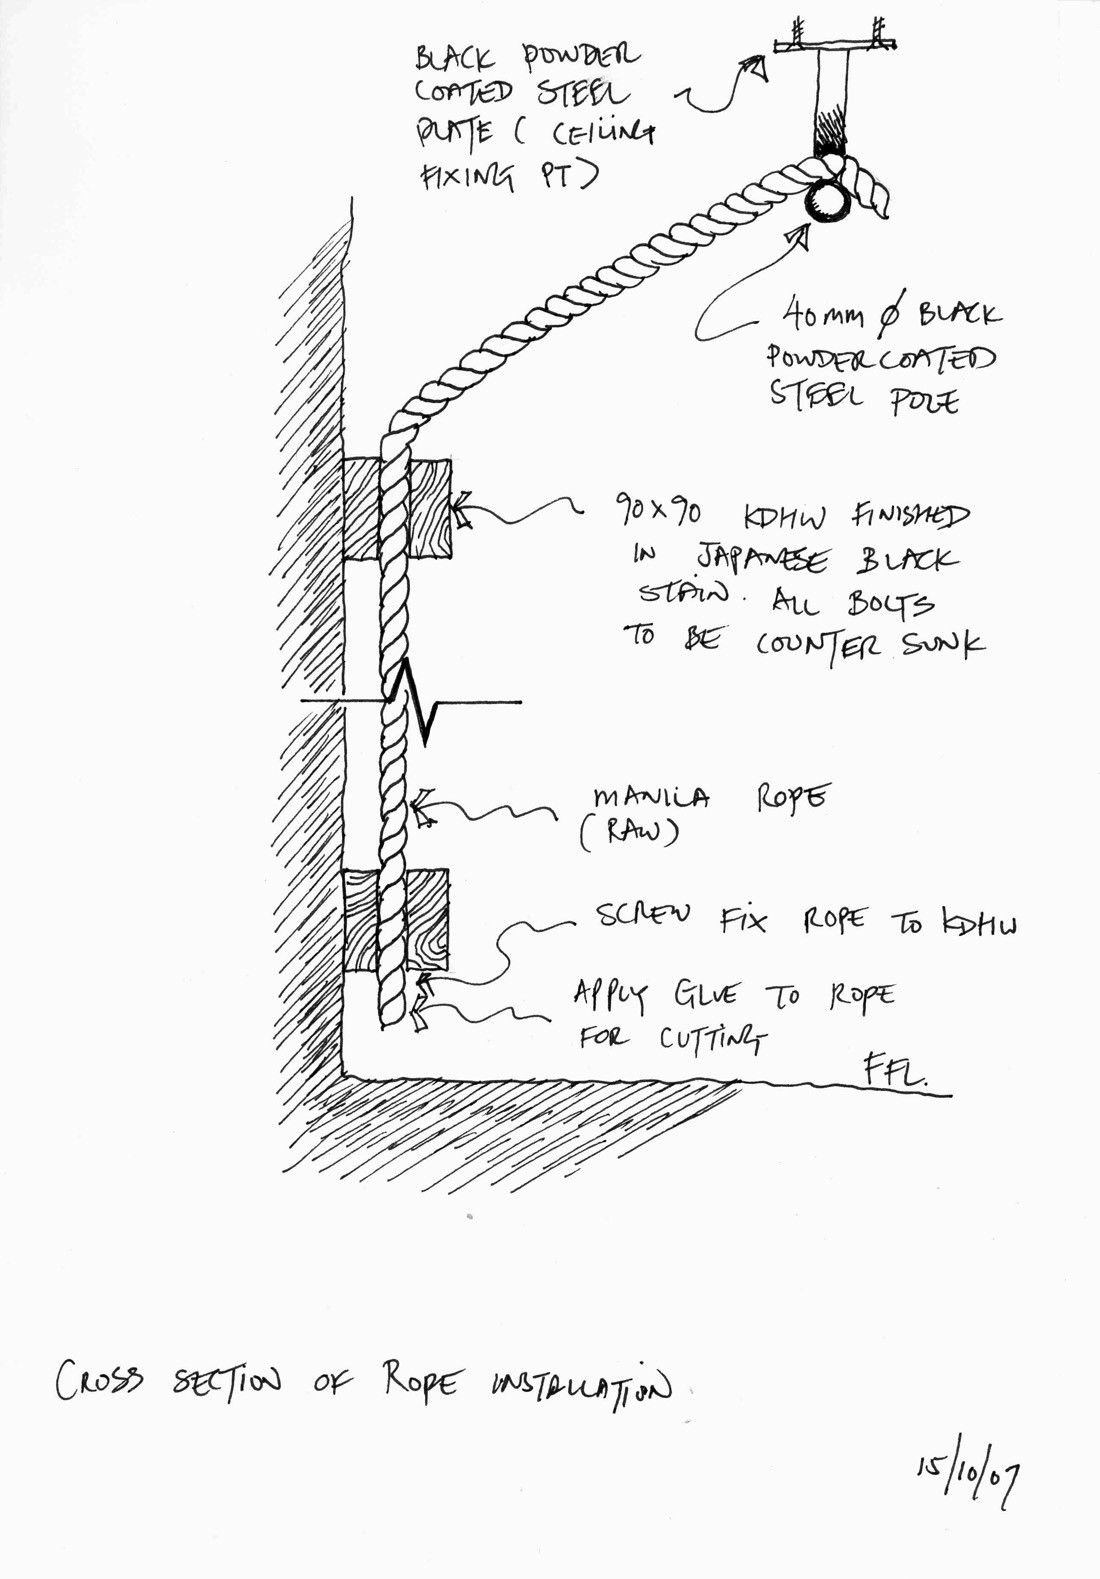 BLACK POWDER
COATED STEEL
PLATE ( CEILING
FIXING PT)
40mm ϕ BLACK
POWDERCOATED
STEEL POLE
90x90 KDHW FINISHED
IN JAPANESE BLACK
STAIN. ALL BOLTS
TO BE COUNTER SUNK
MANILA ROPE
(RAW)
SCREW FIX ROPE TO KDHW
APPLY GLUE TO ROPE
FOR CUTTING
FFL.
CROSS SECTION OF ROPE INSTALLATION
15/10/07